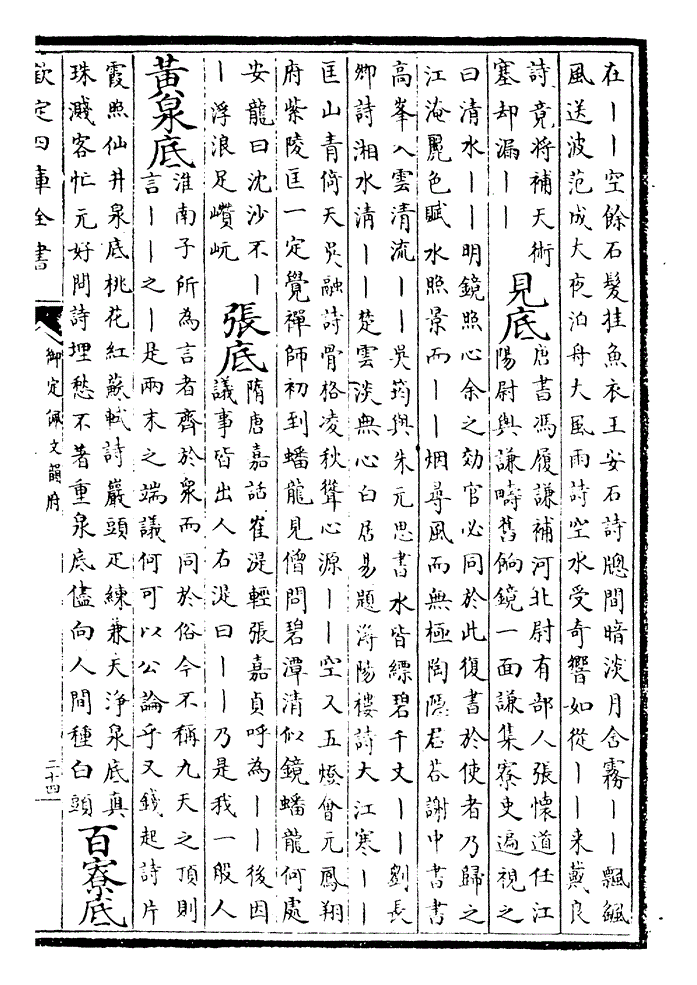 在丨丨空餘石髮挂魚衣王安石詩牕間暗淡月含霧丨丨飄颻
風送波范成大夜泊舟大風雨詩空水受奇響如從丨丨来戴良
詩竟將補天術
塞却漏丨丨
見底
唐書馮履謙補河北尉有部人張懷道任江
陽尉與謙疇舊餉鏡一面謙集寮吏遍視之
曰清水丨丨明鏡照心余之効官必同於此復書於使者乃歸之
江淹麗色賦水照景而丨丨烟尋風而無極陶隱居荅謝中書書
高峯入雲清流丨丨吳筠與朱元思書水皆縹碧千丈丨丨劉長
卿詩湘水清丨丨楚雲淡無心白居易題潯陽樓詩大江寒丨丨
匡山青倚天吳融詩骨格凌秋聳心源丨丨空又五燈會元鳳翔
府紫陵匡一定覺禪師初到蟠龍見僧問碧潭清似鏡蟠龍何處
安龍曰沈沙不丨
丨浮浪足巑岏
張底
隋唐嘉話崔湜輕張嘉貞呼為丨丨後因
議事皆出人右湜曰丨丨乃是我一般人
黃泉底
淮南子所為言者齊於衆而同於俗今不稱九天之頂則
言丨丨之丨是兩末之端議何可以公論乎又錢起詩片
霞照仙井泉底桃花紅蘇軾詩巖頭疋練兼天淨泉底真
珠濺客忙元好問詩埋愁不著重泉底儘向人間種白頭
百寮底
欽定四庫全書
御定佩文韻府
二十四